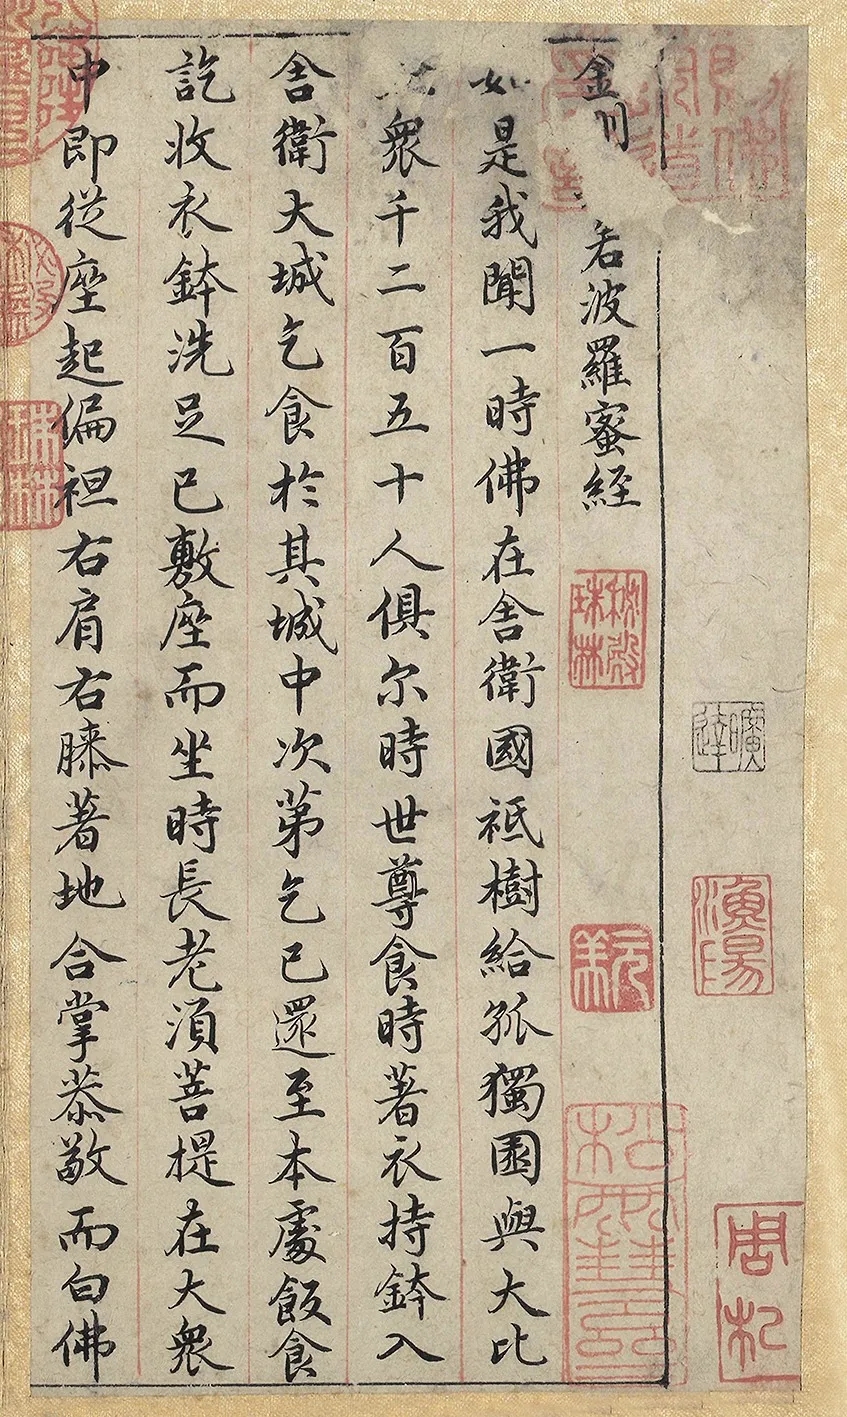 曠達
漁陽
金
若波羅蜜經
秘殿珠林
如是我聞一時佛在舍衛國祇樹給孤獨園與大比
衆千二百五十人俱尓時世尊食時著衣持鉢入
舍衛大城乞食於其城中次第乞已還至本處飯食
訖收衣鉢洗足已敷座而坐時長老須菩提在大衆
中即從座起偏袒右肩右膝著地合掌恭敬而白佛
珠林